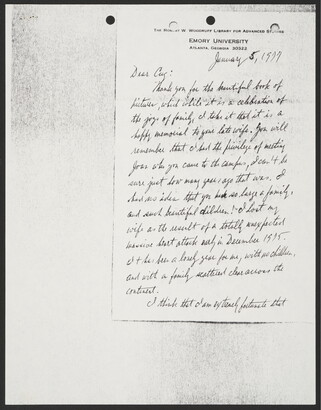 THE ROBERT W. WOODRUFF LIBRARY FOR ADVANCED STUDIES
EMORY UNIVERSITY
ATLANTA, GEORGIA 30322
January 5, 1977
Dear Cy:
Thank you for the beautiful book of
pictures, which while it is a celebration of
the joys of family, I take it that it is a
happy memorial to your late wife. You will
remember that I had the privilege of meeting
when you came to the campus, I can't be
sure just how many years ago that was. I
had no idea that you had so large a family,
and such beautiful children! I lost my
wife as the result of a totally unexpected
massive heart attack early in December 1975.
It has been a lonely year for me, with no children,
and with a family scattered clear across the
continent.
I think that I am extremely fortunate that